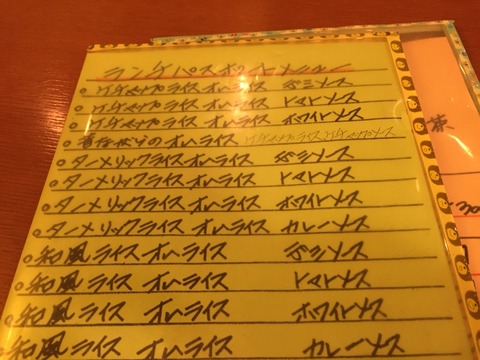 ランチパスポートメニュー
ケチャップライスオムライス デミソース
ケチャップライスオムライス トマトソース
ケチャップライスオムライス ホワイトソース
昔ながらのオムライス ケチャップライスケチャップソース
ターメリックライスオムライス デミソース
ターメリックライスオムライス トマトソース
ターメリックライスオムライス ホワイトソース
ターメリックライスオムライス カレーソース
和風ライス オムライス デミソース
和風ライス オムライス トマトソース
和風ライス オムライス ホワイトソース
和風ライス オムライス カレーソース
茶